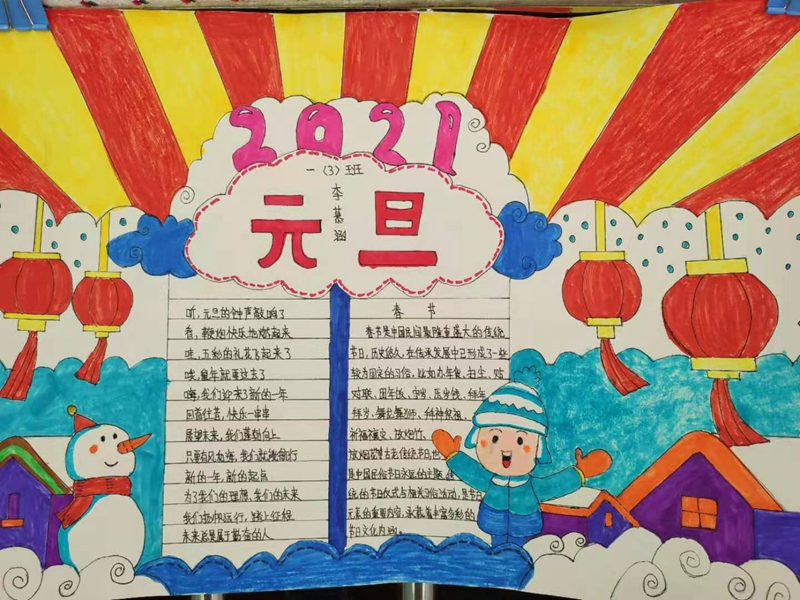 2021
一(3)班
李慕涵
元旦
听,元旦的钟声敲响了
看,鞭炮快乐地燃起来
哇,五彩的礼花飞起来了
哦,鼠年就要过去了
嗨,我们迎来了新的一年
回首往昔,快乐一串串
展望未来,我们蓬勃向上
只要有风与海,我们就能航行
新的一年,新的起点
为了我们的理想,我们的未来
我们扬帆远行,踏上征程
未来总是属于勤奋的人
春节
春节是中国民间最隆重盛大的传统
节日,历史悠久,在传承发展中已形成了一些
较为固定的习俗,比如办年货、扫尘、贴
对联、团年饭、守岁、压岁钱、拜年、
拜岁、舞龙舞狮、拜神祭祖、
祈福禳灾、放烟竹、
放烟花等古老传统节日,也
是中国民俗节日文远的主题,
统的节日仪式与相关习俗活动,是节日
元素的重要内容,承载着丰富多彩的
节日文化内涵。